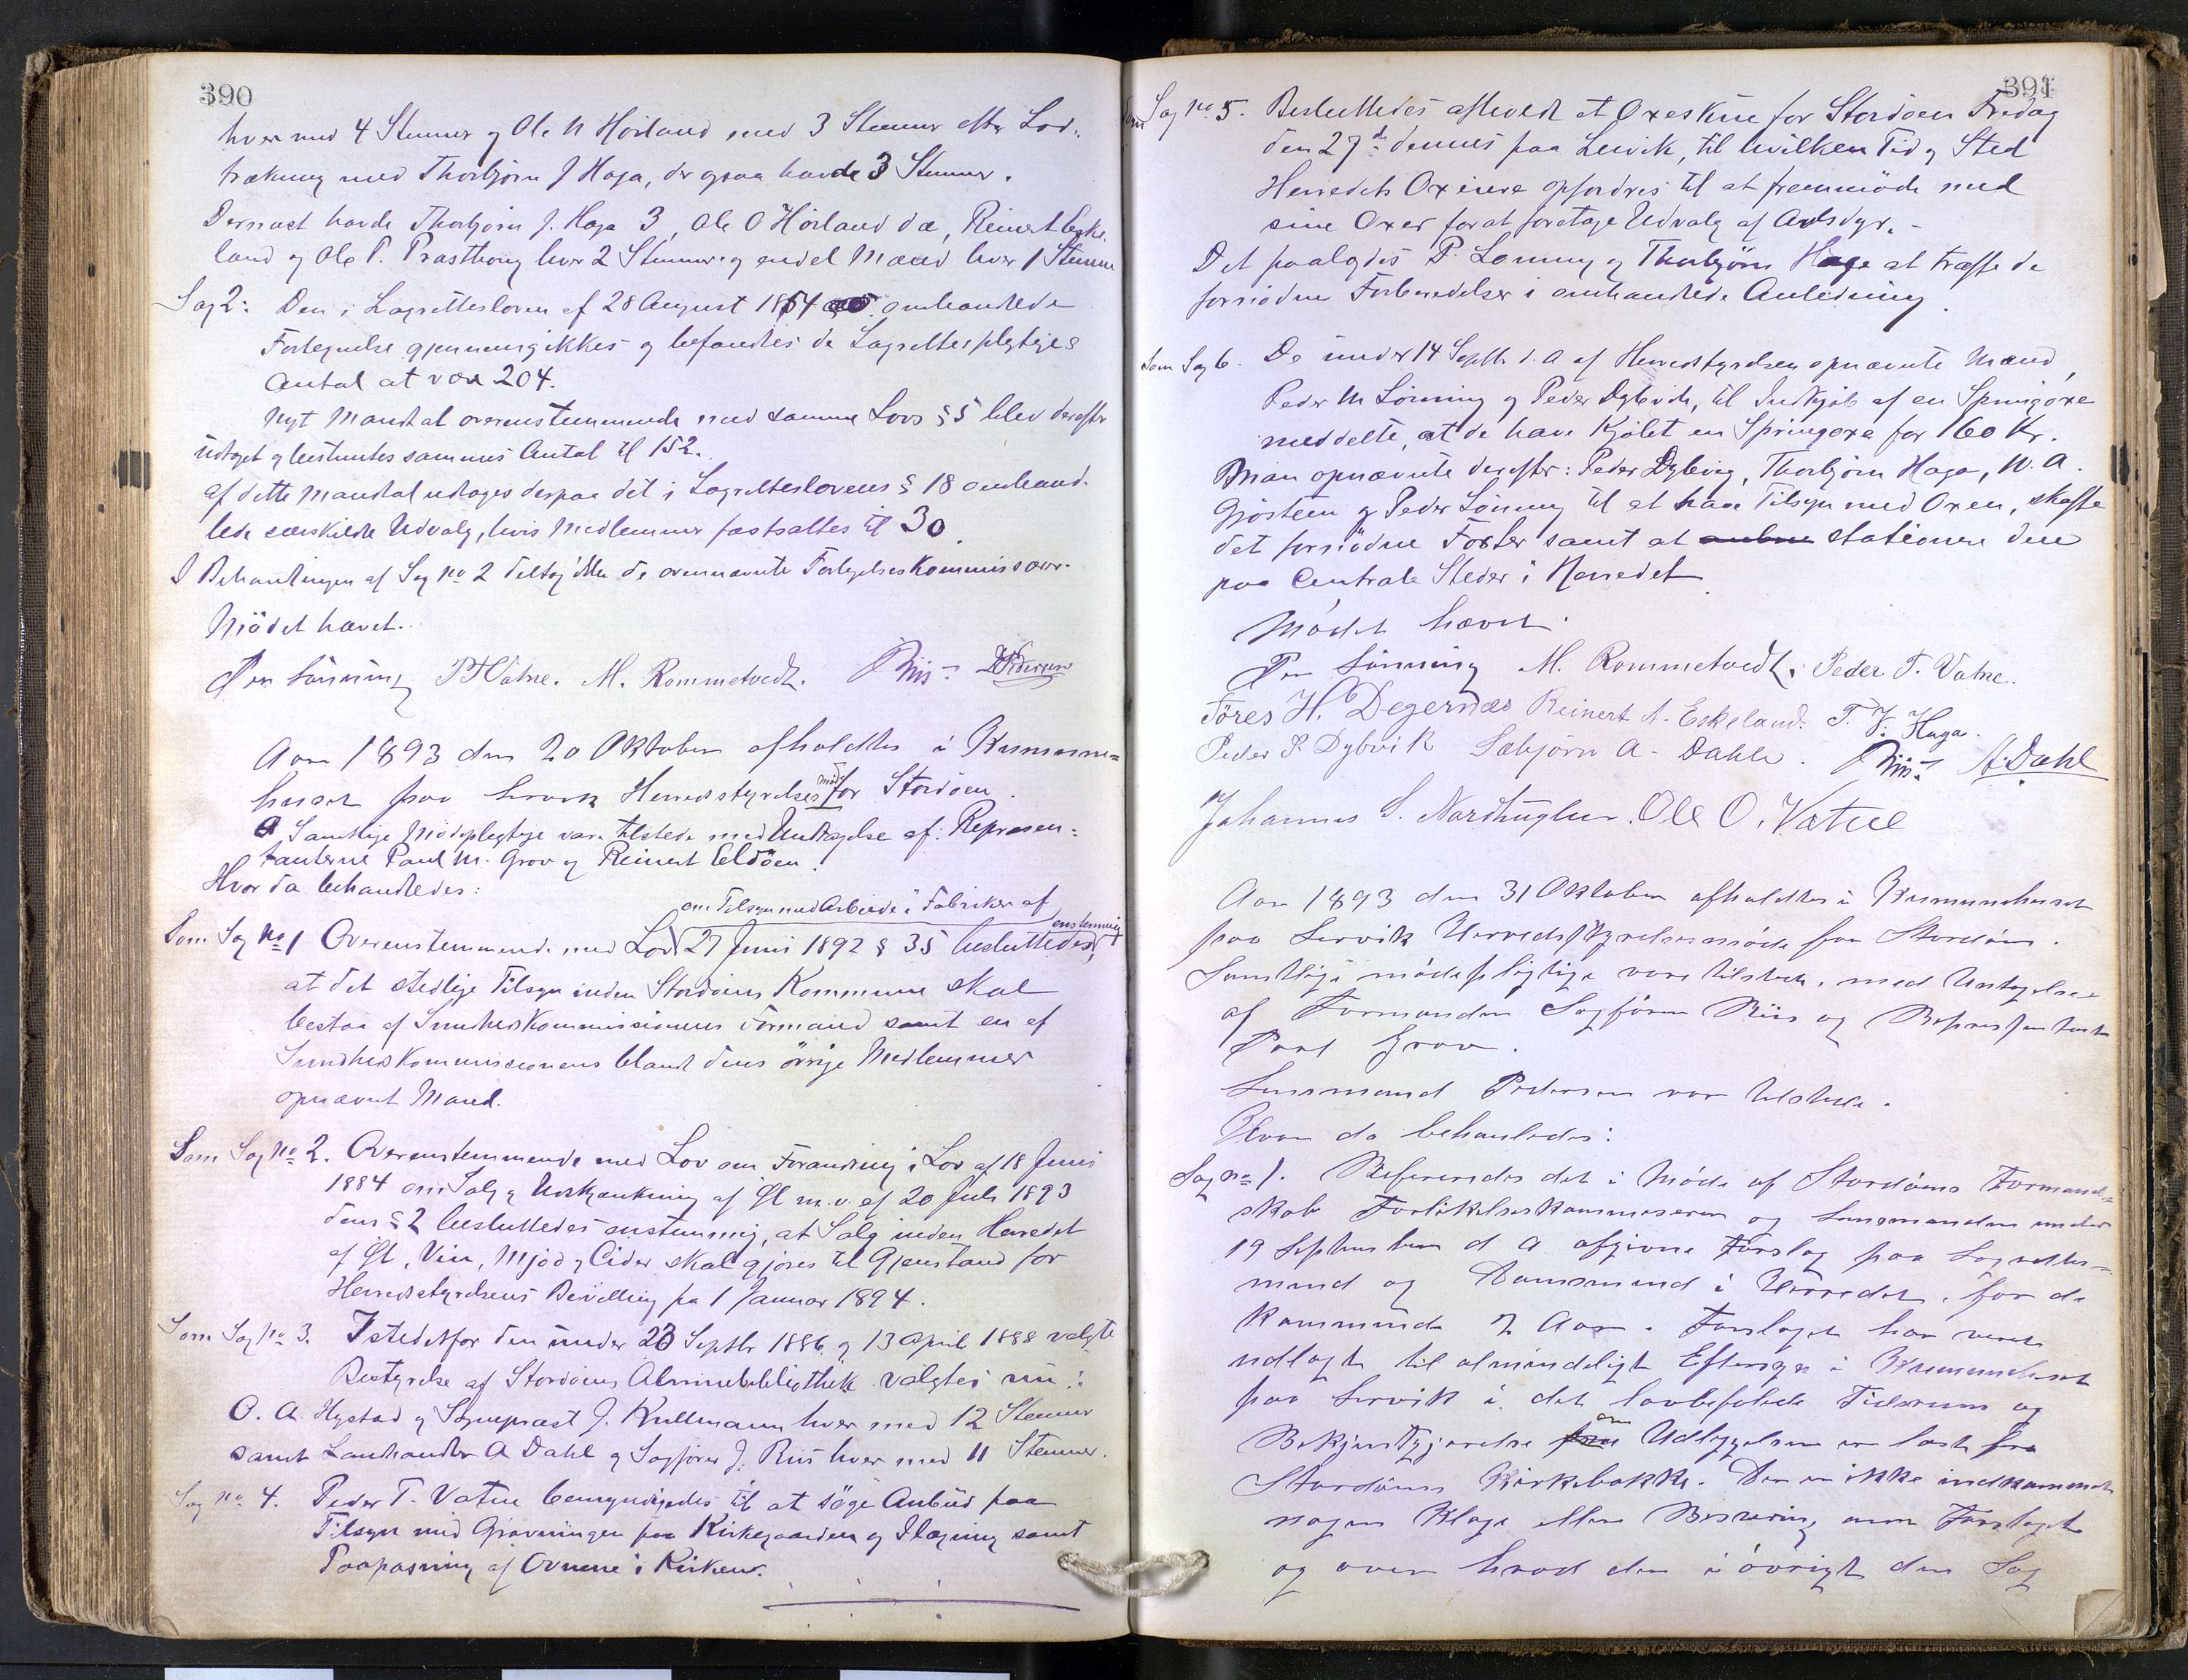 390
hver med 4 Stemmer og Ole N Hörland med 3 Stemmer efter Lod-
trækning med Thorbjörn J Haga, der ogsaa havde 3 Stemmer.
Dernæst havde Thorbjörn J. Haga 3, Ole O Hörland da, Reinert Eske
land og Ole P. Præsthong hver 2 Stemmer og endel Mænd hver 1 Stemme
Sag 2: Den i Lagrettesloven af 28 August 1854 omhandlede
Fortegnelse gjennemgikkes og befandtes de Lagrettespligtiges
Antal at være 204.
Nyt Mandtal overensstemmende med samme Lovs § 5 blev derefter
udtaget og bestemtes sammes Antal til 152.
af dette Mandtal udtoges derpaa det i Lagretteslovens § 18 omhand-
lede særskildte Udvalg, hvis Medlemmer fastsattes til 30.
I Behandlingen af Sag No 2 deltog ikke de overnævnte Forligelseskommissærer.
Mödet hævet.
Peder Lönning P T Vatne. M. Rommetvedt. J Riis - Pedersen
Aar 1893 den 20 Oktober afholdtes i Kommune=
huset paa Lervik Herredsstyrelsesmöde for Stordöen.
Samtlige Mödepligtige vare tilstede med Undtagelse af: Repræsen=
tanterne Paul M. Grov og Reinert Eldöen.
Hvor da behandledes:
om Tilsyn med Arbeide i Fabriker af
enstemmigt
Som Sag No 1 Overensstemmende med Lov 27 Juni 1892 § 35 besluttedes,
at det stedlige Tilsyn inden Stordöens Kommune skal
bestaa af Sundhedskommissionens Formand samt en af
Sundhedskommissionens blandt dens övrige Medlemmer
opnævnt Mand.
Som Sag No 2. Overensstemmende med Lov om Forandring i Lov af 18 Juni
1884 om Salg og Udskjænkning af Öl m.v. af 20 Juli 1893
dens § 2 besluttedes enstemmig, at Salg inden Herredet
af Öl, Vin, Mjöd og Cider skal gjöres til Gjenstand for
Herredsstyrelsens Bevilling fra 1 Januar 1894.
Som Sag No 3. Istedetfor den under 23 Septbr 1886 og 13 April 1888 valgte
Bestyrelse af Stordöens Almuebibliothek valgtes nu:
O. A. Hystad og Sognepræst J. Kullmann hver med 12 Stemmer
samt Landhandler A Dahl og Sagförer J. Riis hver med 11 Stemmer.
Sag No 4. Peder T. Vatne bemyndigedes til at söge Anbud paa
Tilsyn med Gravningen paa Kirkegaarden og Ilægning samt
Paapasning af Ovnene i Kirken.
391
Som Sag No 5. Besluttedes afholdt et Oxeskue for Stordöen Fredag
den 27de dennes paa Lervik, til hvilken Tid og Sted
Herredets Oxeiere opfordres til at fremmöde med
sine Oxer forat foretage Udvalg af Avlsdyr. -
Det paalagdes P. Lönning og Thorbjörn Haga at træffe de
fornödne Forberedelser i omhandlede Anledning.
Som Sag 6. De under 14 Septbr d. A af Herredsstyrelsen opnævnte Mænd,
Peder M Lönning og Peder Dybvik, til Indkjöb af en Springoxe
meddelte, at de have kjöbt en Springoxe for 160 Kr.
Man opnævnte derefter: Peder Dybvig, Thorbjörn Haga, N. A.
Gjöstein og Peder Lönning til at have Tilsyn med Oxen, skaffe
det fornödne Foster samt at stationere den
paa Centrale Steder i Herredet.
Mödet hævet.
Peder Lönning M. Rommetvedt. Peder T. Vatne.
Töres H. Degernæs Reinert A. Eskeland. T. J. Haga.
Peder P. Dybvik Sæbjörn A. Dahle. J Riis - A. Dahl
Johannes S. Nordhuglen. Ole O. Vatne
Aar 1893 den 31 Oktober afholdtes i Kommunehuset
paa Lervik Herredsstyrelsesmöde for Stordöen.
Samtlige mödepligtige vare tilstede, med Undtagelse
af Formanden Sagförer Riis og Repræsentant
Paul Grov.
Lensmand Pedersen var tilstede.
Hvor da behandledes:
Sag No 1. Refereredes det i Möde af Stordöens Formand=
skab Forlikelseskommissærer og Lensmanden under
19 September d A afgivne Forslag paa Lagrettes=
mænd og Domsmænd i Herredet, for de
kommende 2 Aar. Forslaget har været
udlagt til almindeligt Eftersyn i Kommunehuset
paa Lervik i det lovbefalede Tidsrum og
Bekjendtgjörelse om Udlæggelsen er læst fra
Stordöens Kirkebakke. Der er ikke indkommet
nogen Klage eller Besværing over Forslaget
og over hvad der i övrigt den Sag